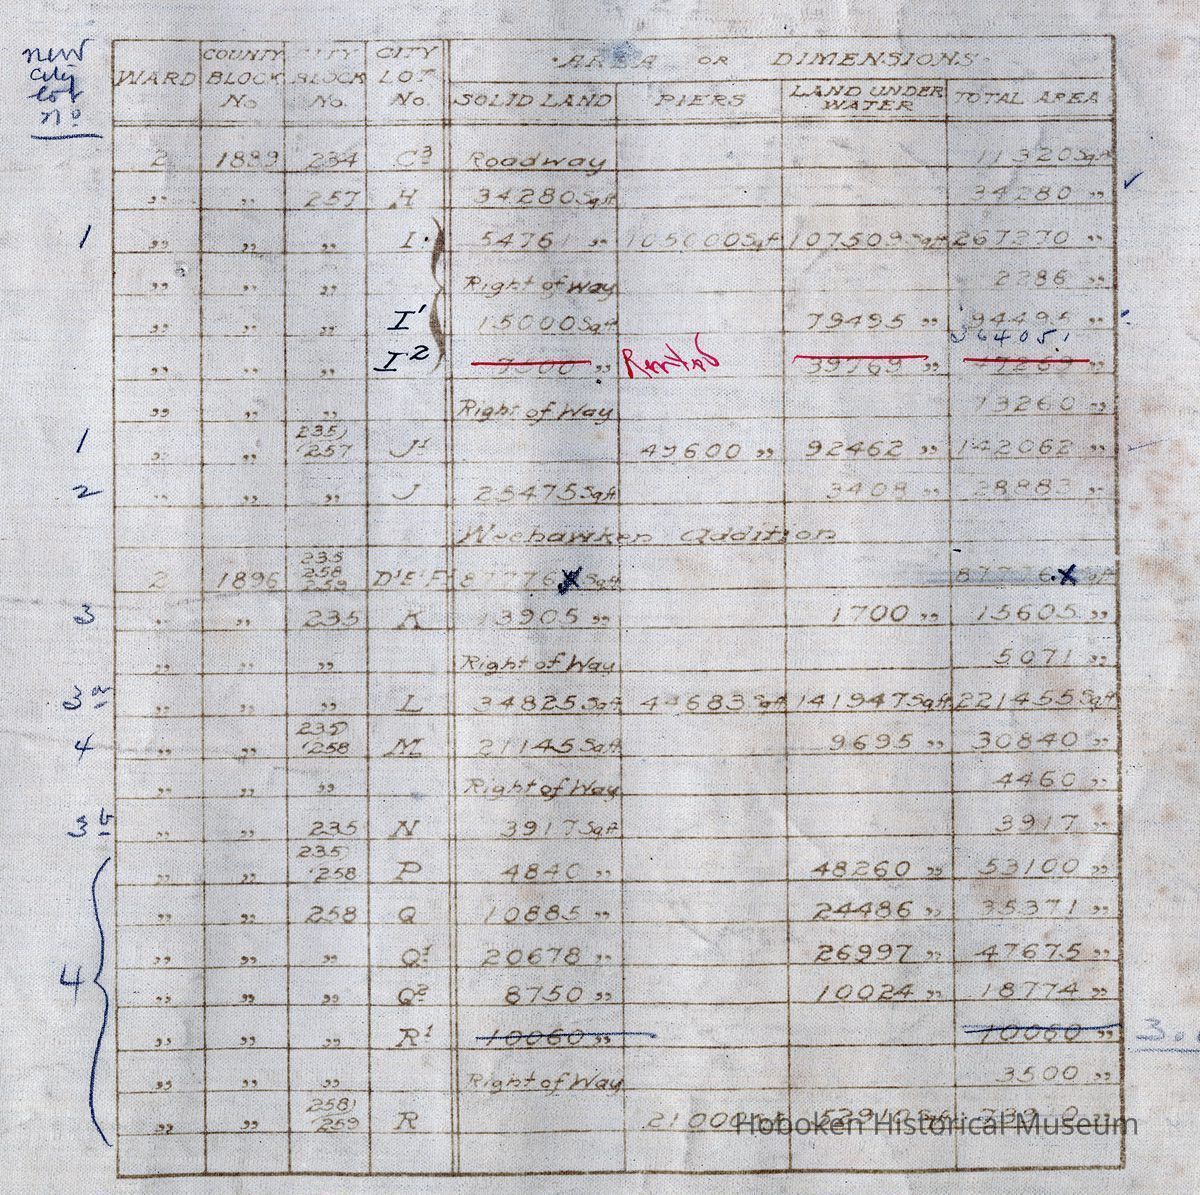 new
city
lot
No.
WARD COUNTY BLOCK No CITY BLOCK No. CITY LOT No. AREA OR DIMENSIONS
SOLID LAND PIERS LAND UNDER WATER TOTAL AREA
2 1899 234 C3 Roadway 11320 Sqft
" " 257 H 34280 Sqft 34280 "
1 " " " I 54761 " 105000 Sqft 107509 Sqft 267270 "
" " " Right of Way 2286 "
" " " I' 15000 Sqft 79495 " 94495 "
364051
" " " I2 7500 " 39769 " 47269 "
" " " Right of Way 13260 "
1 " " 235) 257 J1 49600 " 92462 " 142062 "
2 " " " J 25475 Sqft 3408 " 28883 "
Weehawken Addition
2 1896 235 258 259 D'E'F' 87776 Sqft 87776 Sqft
3 " " 235 K 13905 " 1700 " 15605 "
" " " Right of Way 5071 "
3a " " " L 34825 Sqft 44683 Sqft 141947 Sqft 221455 Sqft
4 " " 235) 258 M 21145 Sqft 9695 " 30840 "
" " " Right of Way 4460 "
3b " " 235 N 3917 Sqft 3917 "
" " 235) 258 P 4840 " 48260 " 53100 "
" " 258 Q 10885 " 24486 " 35371 "
4 " " " Q1 20678 " 26997 " 47675 "
" " " Q2 8750 " 10024 " 18774 "
" " " R1 10060 " 10060 "
" " " Right of Way 3500 "
" " 258) 259 R 21000
Hoboken Historical Museum